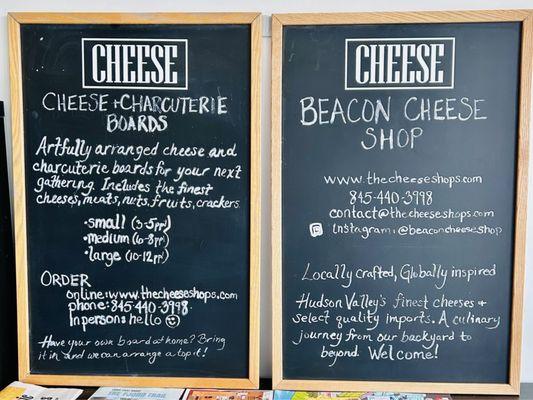 CHEESE
CHEESE + CHARCUTERIE
BOARDS
Artfully arranged cheese and
charcuterie boards for your next
gathering. Includes the finest
cheeses, meats, nuts, fruits, crackers.
• small (3-5pp)
• medium (6-8pp)
• large (10-12pp)
ORDER
online: www.thecheeseshops.com
phone: 845-440-3998
In person: hello
Have your own board at home? Bring
it in and we can arrange atop it!
CHEESE
BEACON CHEESE
SHOP
www.thecheeseshops.com
845-440-3998
contact@thecheeseshops.com
Instagram: @beaconcheeseshop
Locally crafted, Globally inspired
Hudson Valley's finest cheeses +
select quality imports. A culinary
journey from our backyard to
beyond. Welcome!